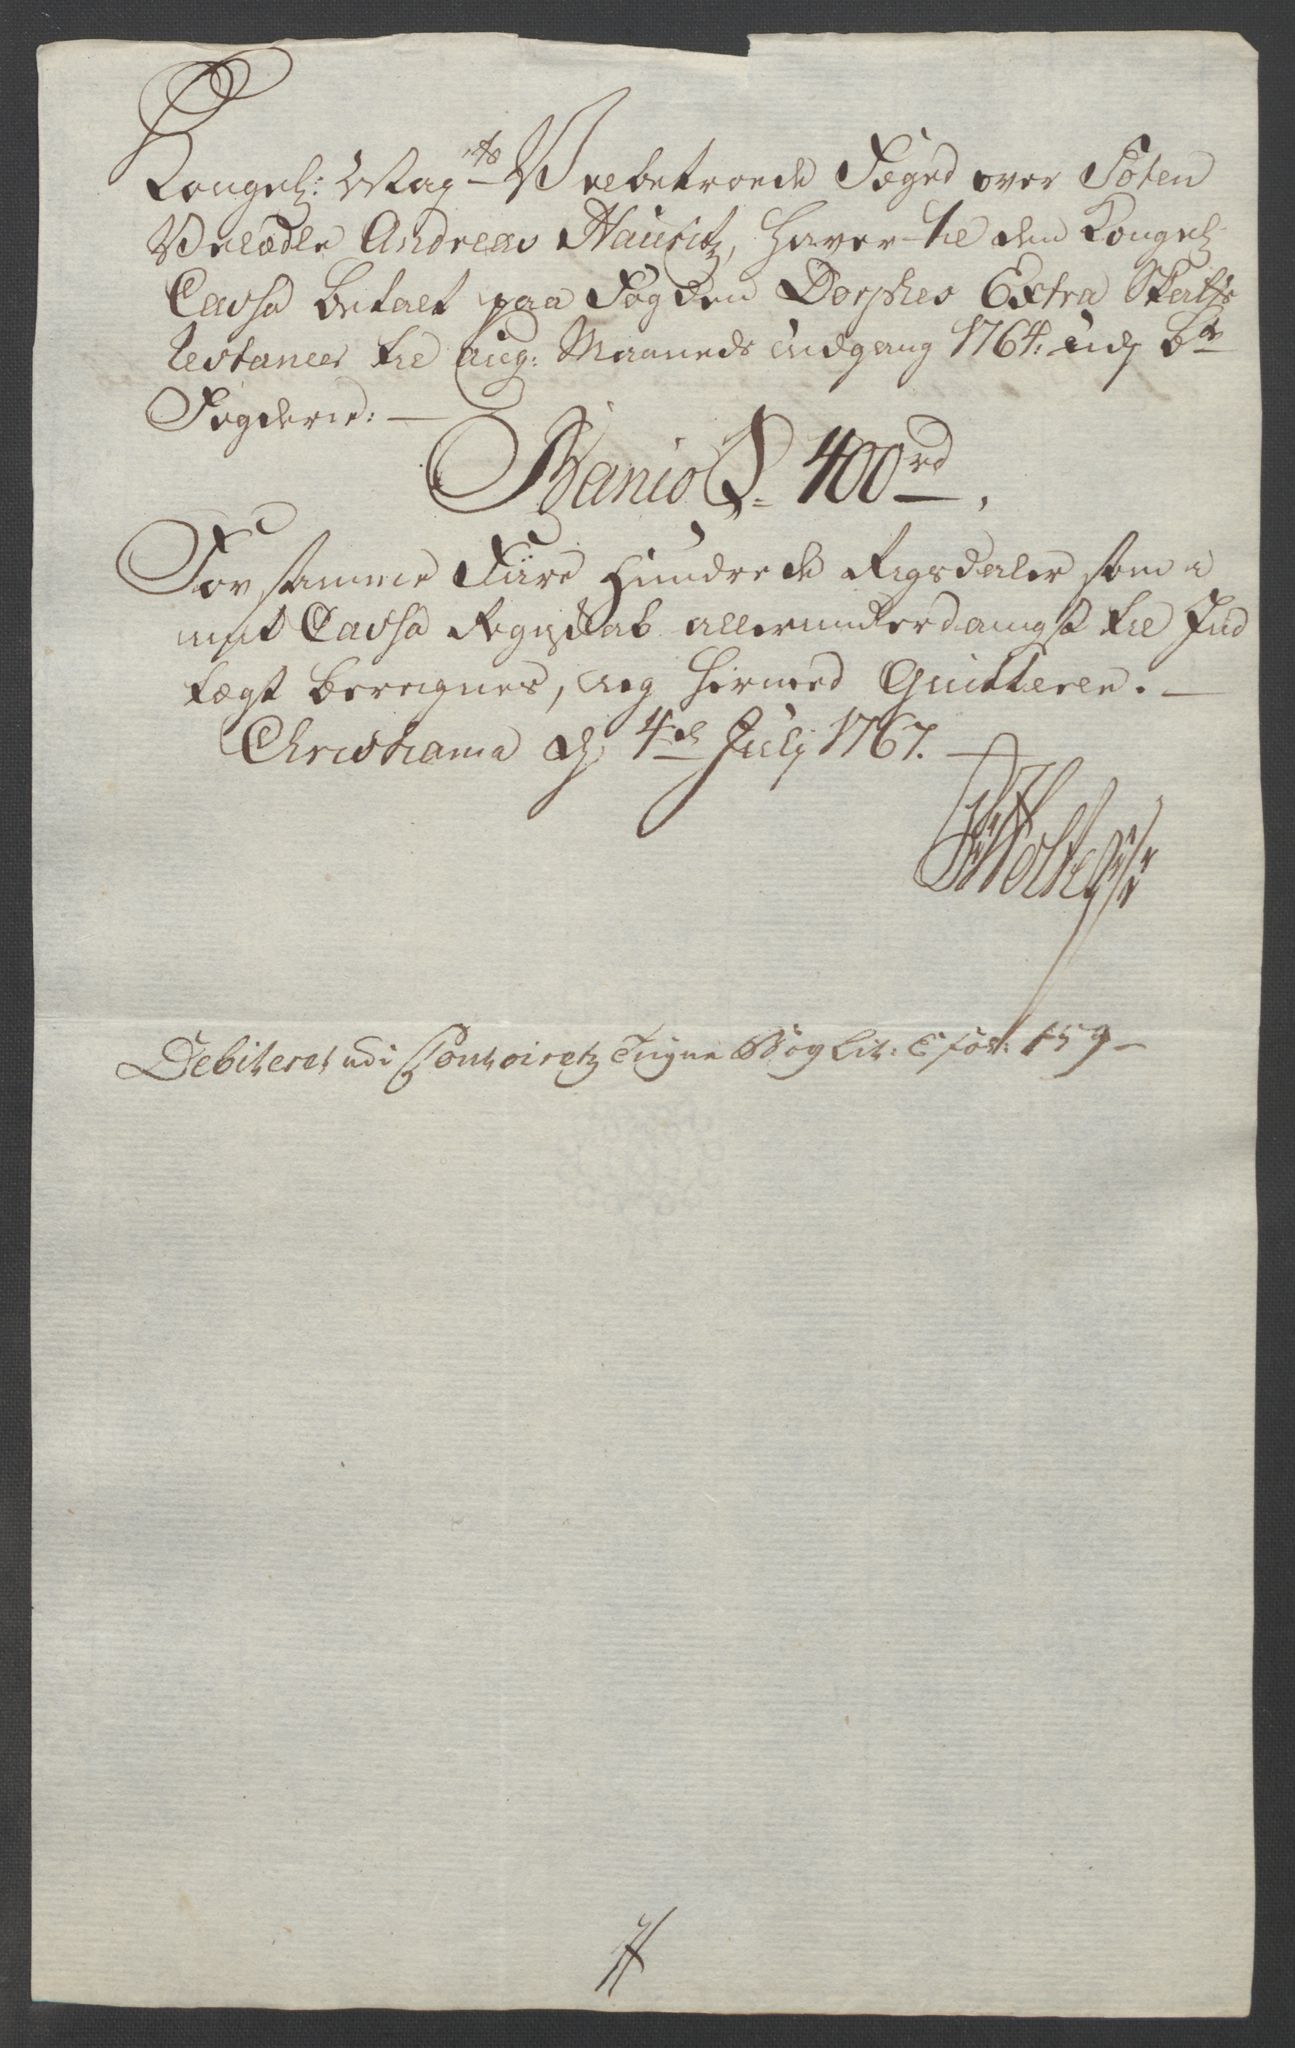 Kongel: May:ts Velbetroede Foged over Toten
Velædle Andreas Hauritz, haver til den Kongel:
Cassa betalt paa Fogden Dorphes Extra Skatts
Restancer til Aug: Maaneds Udgang 1764: udj b:te
Fogderie: —
Banco S. 400 rd.
For samme Fiire Hundrede Rigsdaler som i
mit Cassa Regnskab allerunderdanigst til Ind
tægt beregnes, ieg hermed Quitterer. —
Christiania d. 4de Julij 1767. —
Debiteret udi Contoiretz Eigne Bog Lit: C fol: 159 —